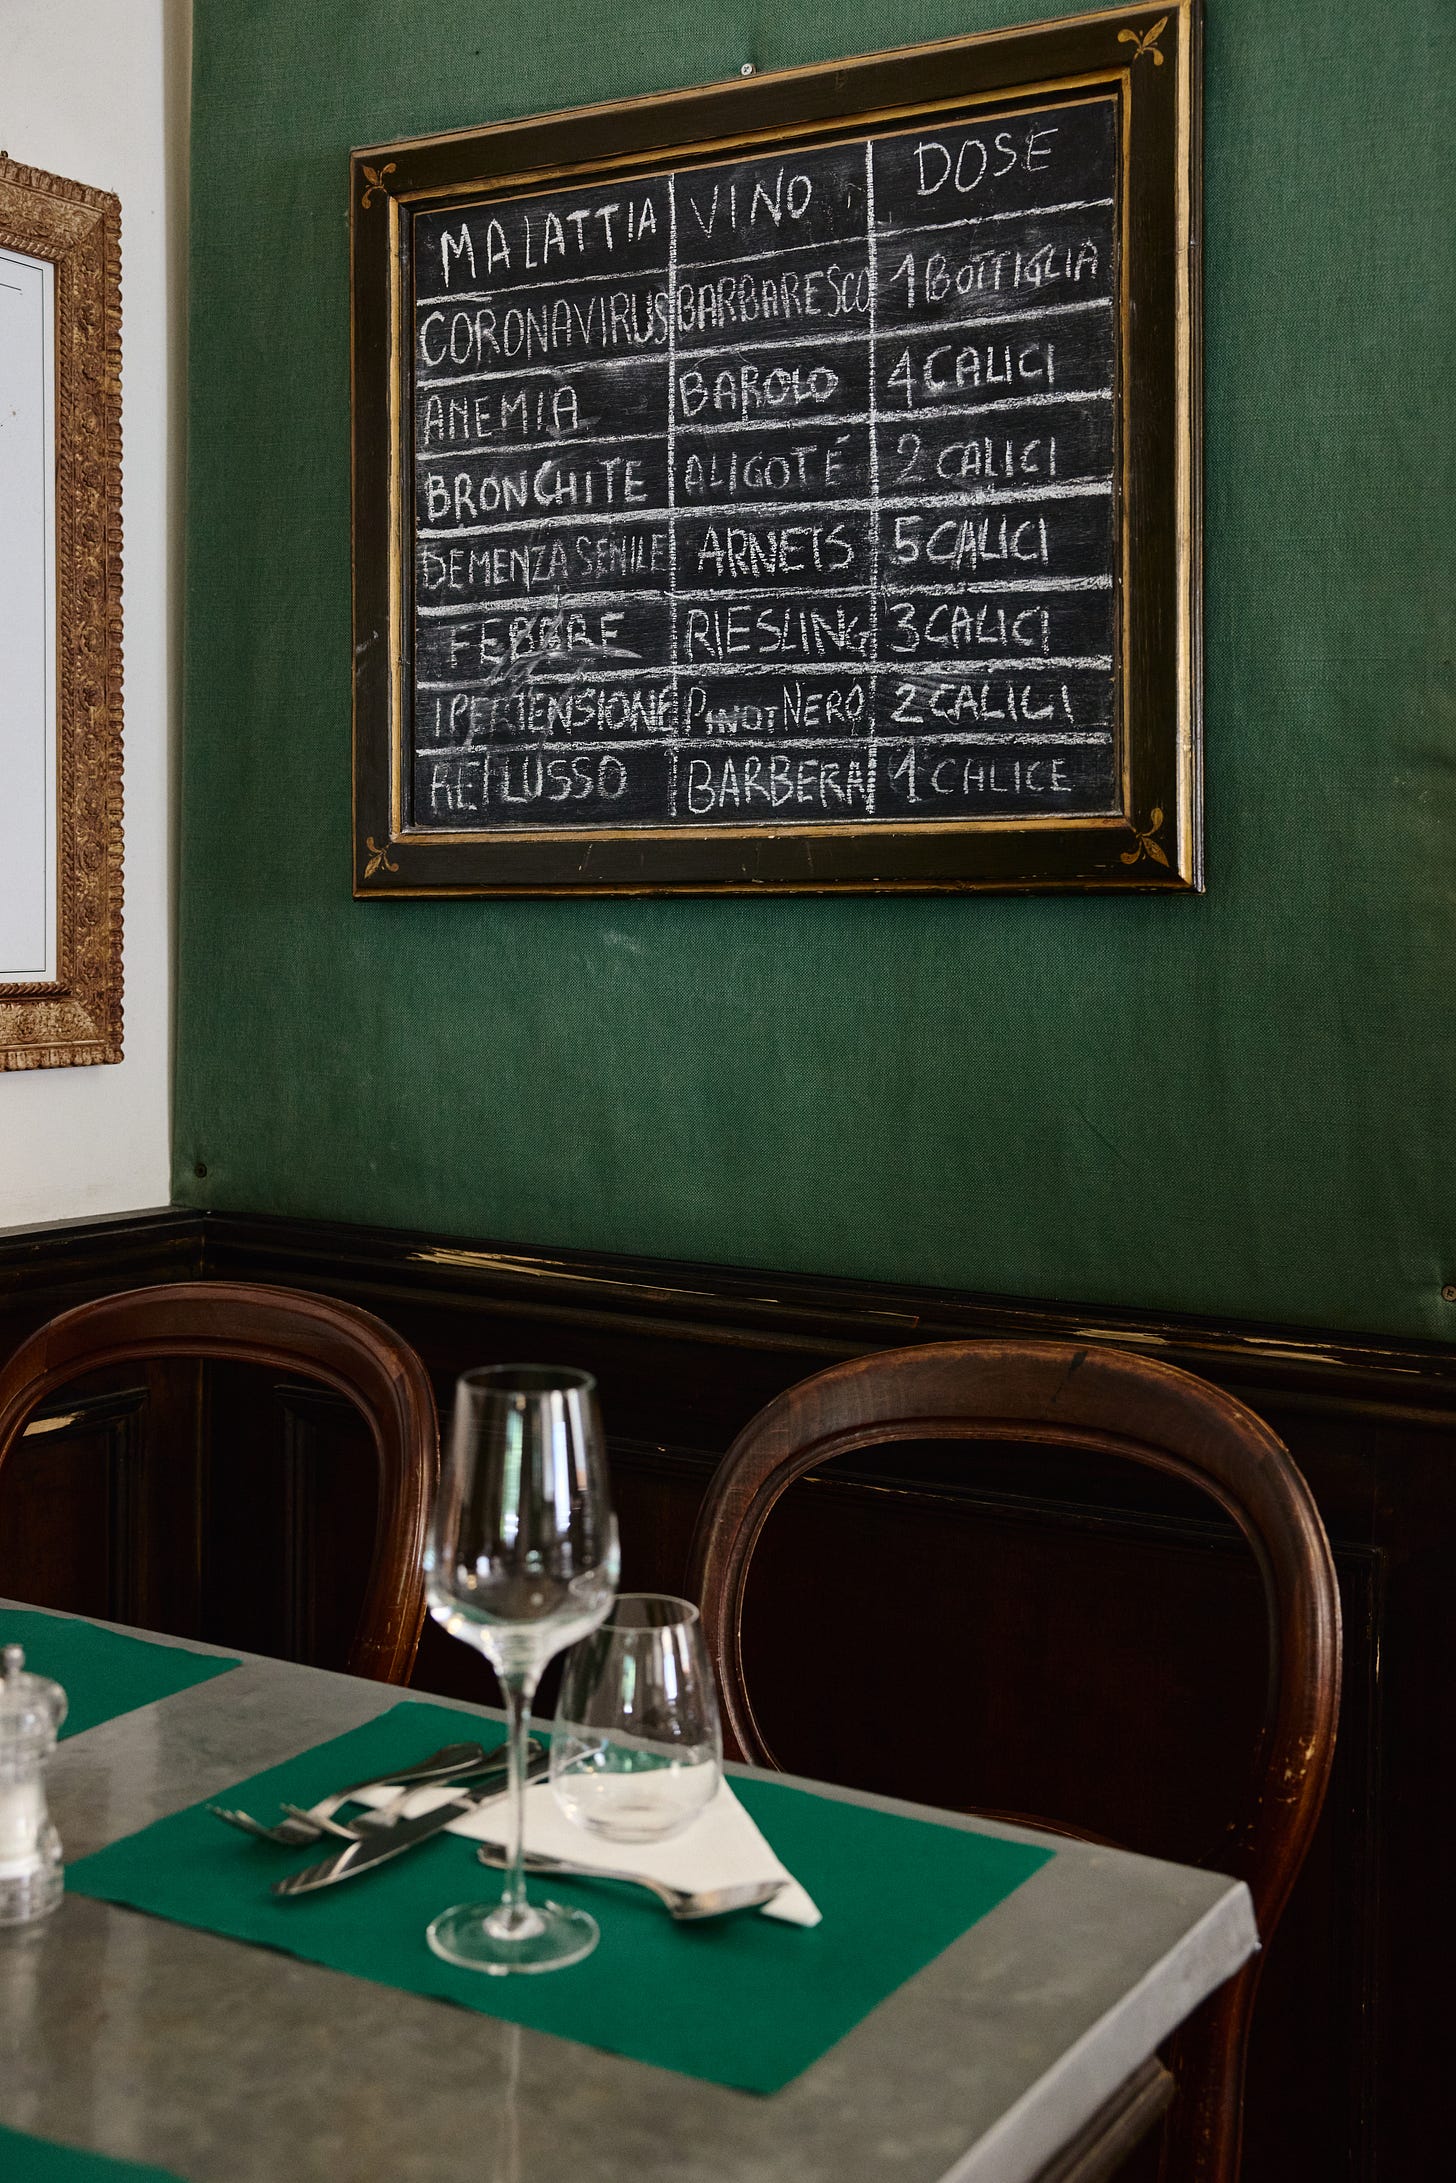 MALATTIA VINO DOSE
CORONAVIRUS BARBARESCO 1 BOTTIGLIA
ANEMIA BAROLO 4 CALICI
BRONCHITE ALIGOTÉ 2 CALICI
DEMENZA SENILE ARNEIS 5 CALICI
FEBBRE RIESLING 3 CALICI
IPERTENSIONE PINOT NERO 2 CALICI
REFLUSSO BARBERA 1 CALICE